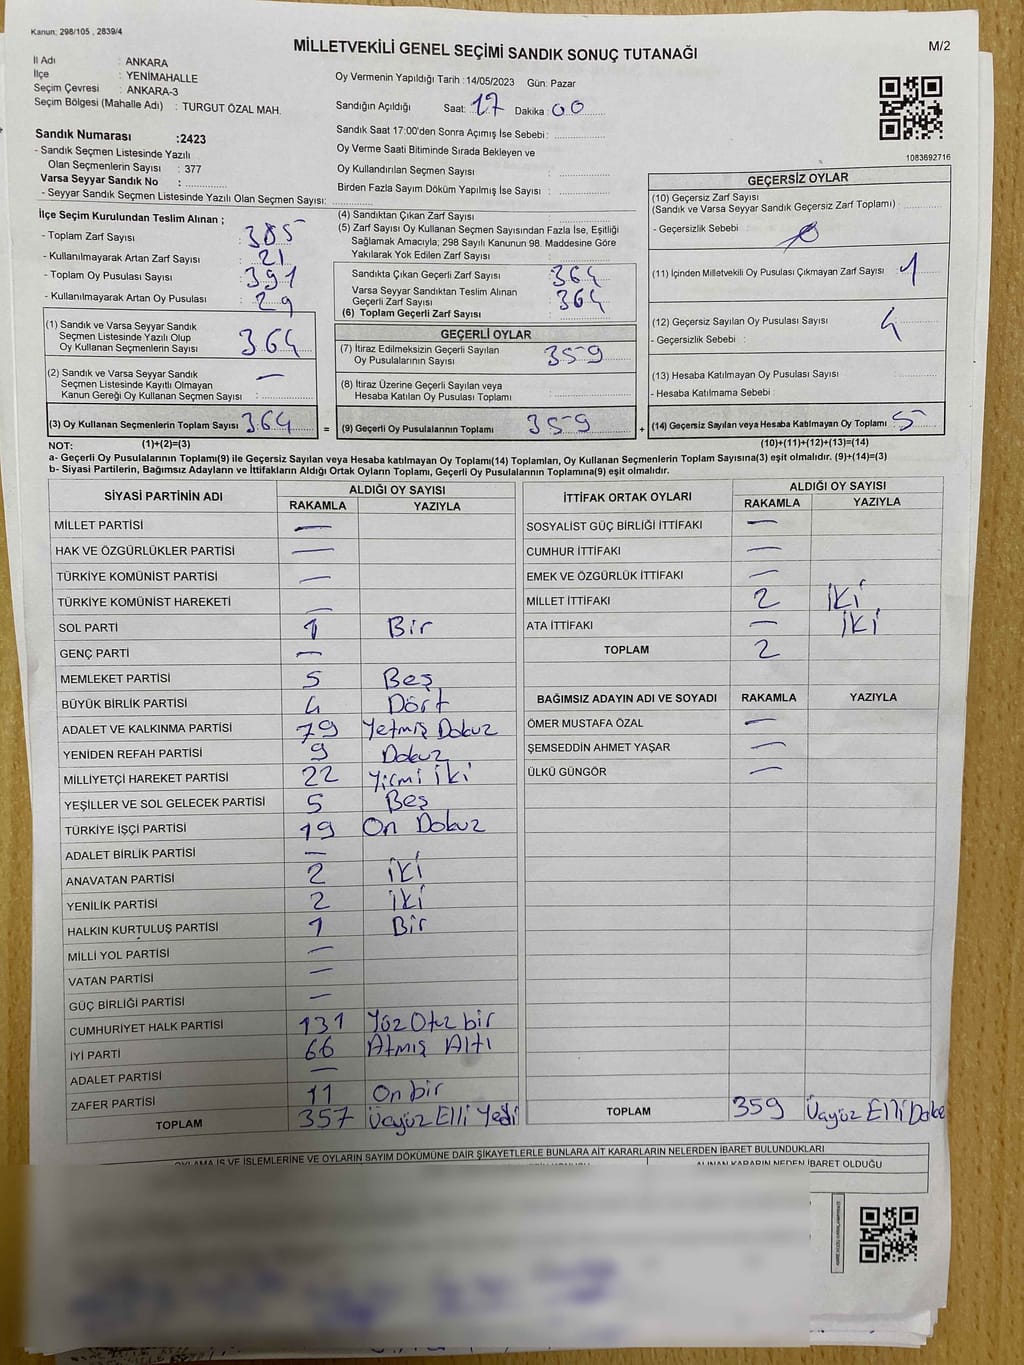 Kanun; 298/105 , 2839/4
MİLLETVEKİLİ GENEL SEÇİMİ SANDIK SONUÇ TUTANAĞI
M/2
İl Adı : ANKARA
İlçe : YENİMAHALLE
Seçim Çevresi : ANKARA-3
Seçim Bölgesi (Mahalle Adı) : TURGUT ÖZAL MAH.
Oy Vermenin Yapıldığı Tarih : 14/05/2023 Gün: Pazar
Sandığın Açıldığı Saat: 17 Dakika : 00
Sandık Saat 17:00'den Sonra Açımış İse Sebebi :
Oy Verme Saati Bitiminde Sırada Bekleyen ve
Oy Kullandırılan Seçmen Sayısı :
Birden Fazla Sayım Döküm Yapılmış İse Sayısı :
Sandık Numarası :2423
- Sandık Seçmen Listesinde Yazılı
Olan Seçmenlerin Sayısı : 377
Varsa Seyyar Sandık No :
- Seyyar Sandık Seçmen Listesinde Yazılı Olan Seçmen Sayısı:
1083692716
İlçe Seçim Kurulundan Teslim Alınan ;
- Toplam Zarf Sayısı : 385
- Kullanılmayarak Artan Zarf Sayısı : 21
- Toplam Oy Pusulası Sayısı : 391
- Kullanılmayarak Artan Oy Pusulası : 29
(1) Sandık ve Varsa Seyyar Sandık
Seçmen Listesinde Yazılı Olup
Oy Kullanan Seçmenlerin Sayısı : 364
(2) Sandık ve Varsa Seyyar Sandık —
Seçmen Listesinde Kayıtlı Olmayan
Kanun Gereği Oy Kullanan Seçmen Sayısı :
(3) Oy Kullanan Seçmenlerin Toplam Sayısı : 364 =
(1)+(2)=(3)
(4) Sandıktan Çıkan Zarf Sayısı :
(5) Zarf Sayısı Oy Kullanan Seçmen Sayısından Fazla İse, Eşitliği
Sağlamak Amacıyla; 298 Sayılı Kanunun 98. Maddesine Göre
Yakılarak Yok Edilen Zarf Sayısı :
Sandıkta Çıkan Geçerli Zarf Sayısı : 364
Varsa Seyyar Sandıktan Teslim Alınan
Geçerli Zarf Sayısı : 364
(6) Toplam Geçerli Zarf Sayısı :
GEÇERLİ OYLAR
(7) İtiraz Edilmeksizin Geçerli Sayılan
Oy Pusulalarının Sayısı : 359
(8) İtiraz Üzerine Geçerli Sayılan veya
Hesaba Katılan Oy Pusulası Toplamı :
(9) Geçerli Oy Pusulalarının Toplamı : 359 +
GEÇERSİZ OYLAR
(10) Geçersiz Zarf Sayısı
(Sandık ve Varsa Seyyar Sandık Geçersiz Zarf Toplamı) :
- Geçersizlik Sebebi :
(11) İçinden Milletvekili Oy Pusulası Çıkmayan Zarf Sayısı : 1
(12) Geçersiz Sayılan Oy Pusulası Sayısı : 4
- Geçersizlik Sebebi :
(13) Hesaba Katılmayan Oy Pusulası Sayısı :
- Hesaba Katılmama Sebebi :
(14) Geçersiz Sayılan veya Hesaba Katılmayan Oy Toplamı : 5
(10)+(11)+(12)+(13)=(14)
NOT:
a- Geçerli Oy Pusulalarının Toplamı(9) ile Geçersiz Sayılan veya Hesaba katılmayan Oy Toplamı(14) Toplamları, Oy Kullanan Seçmenlerin Toplam Sayısına(3) eşit olmalıdır. (9)+(14)=(3)
b- Siyasi Partilerin, Bağımsız Adayların ve İttifakların Aldığı Ortak Oyların Toplamı, Geçerli Oy Pusulalarının Toplamına(9) eşit olmalıdır.
SİYASİ PARTİNİN ADI ALDIĞI OY SAYISI
RAKAMLA YAZIYLA
MİLLET PARTİSİ —
HAK VE ÖZGÜRLÜKLER PARTİSİ —
TÜRKİYE KOMÜNİST PARTİSİ —
TÜRKİYE KOMÜNİST HAREKETİ —
SOL PARTİ 1 Bir
GENÇ PARTİ —
MEMLEKET PARTİSİ 5 Beş
BÜYÜK BİRLİK PARTİSİ 4 Dört
ADALET VE KALKINMA PARTİSİ 79 Yetmiş Dokuz
YENİDEN REFAH PARTİSİ 9 Dokuz
MİLLİYETÇİ HAREKET PARTİSİ 22 Yirmi iki
YEŞİLLER VE SOL GELECEK PARTİSİ 5 Beş
TÜRKİYE İŞÇİ PARTİSİ 19 On Dokuz
ADALET BİRLİK PARTİSİ —
ANAVATAN PARTİSİ 2 İki
YENİLİK PARTİSİ 2 İki
HALKIN KURTULUŞ PARTİSİ 1 Bir
MİLLİ YOL PARTİSİ —
VATAN PARTİSİ —
GÜÇ BİRLİĞİ PARTİSİ —
CUMHURİYET HALK PARTİSİ 131 Yüz Otuz bir
İYİ PARTİ 66 Atmış Altı
ADALET PARTİSİ —
ZAFER PARTİSİ 11 On bir
TOPLAM 357 Üçyüz Elli Yedi
İTTİFAK ORTAK OYLARI ALDIĞI OY SAYISI
RAKAMLA YAZIYLA
SOSYALİST GÜÇ BİRLİĞİ İTTİFAKI —
CUMHUR İTTİFAKI —
EMEK VE ÖZGÜRLÜK İTTİFAKI —
MİLLET İTTİFAKI 2 İki
ATA İTTİFAKI — İki
TOPLAM 2
BAĞIMSIZ ADAYIN ADI VE SOYADI RAKAMLA YAZIYLA
ÖMER MUSTAFA ÖZAL —
ŞEMSEDDİN AHMET YAŞAR —
ÜLKÜ GÜNGÖR —
TOPLAM 359 Üçyüz Elli
OYLAMA İŞ VE İŞLEMLERİNE VE OYLARIN SAYIM DÖKÜMÜNE DAİR ŞİKAYETLERLE BUNLARA AİT KARARLARIN NELERDEN İBARET BULUNDUKLARI
ALINAN KARARIN NEDEN İBARET OLDUĞU